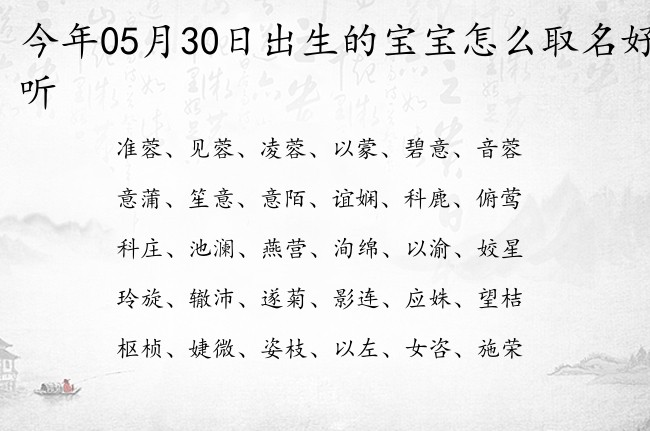 今年05月30日出生的宝宝怎么取名好
听
准蓉、见蓉、凌蓉、以蒙、碧意、音蓉
意蒲、笙意、意陌、谊娴、科鹿、俯莺
科庄、池澜、燕营、洵绵、以渝、姣星
玲旋、辙沛、遂菊、影连、应姝、望桔
枢桢、婕微、姿枝、以左、女咨、施荣